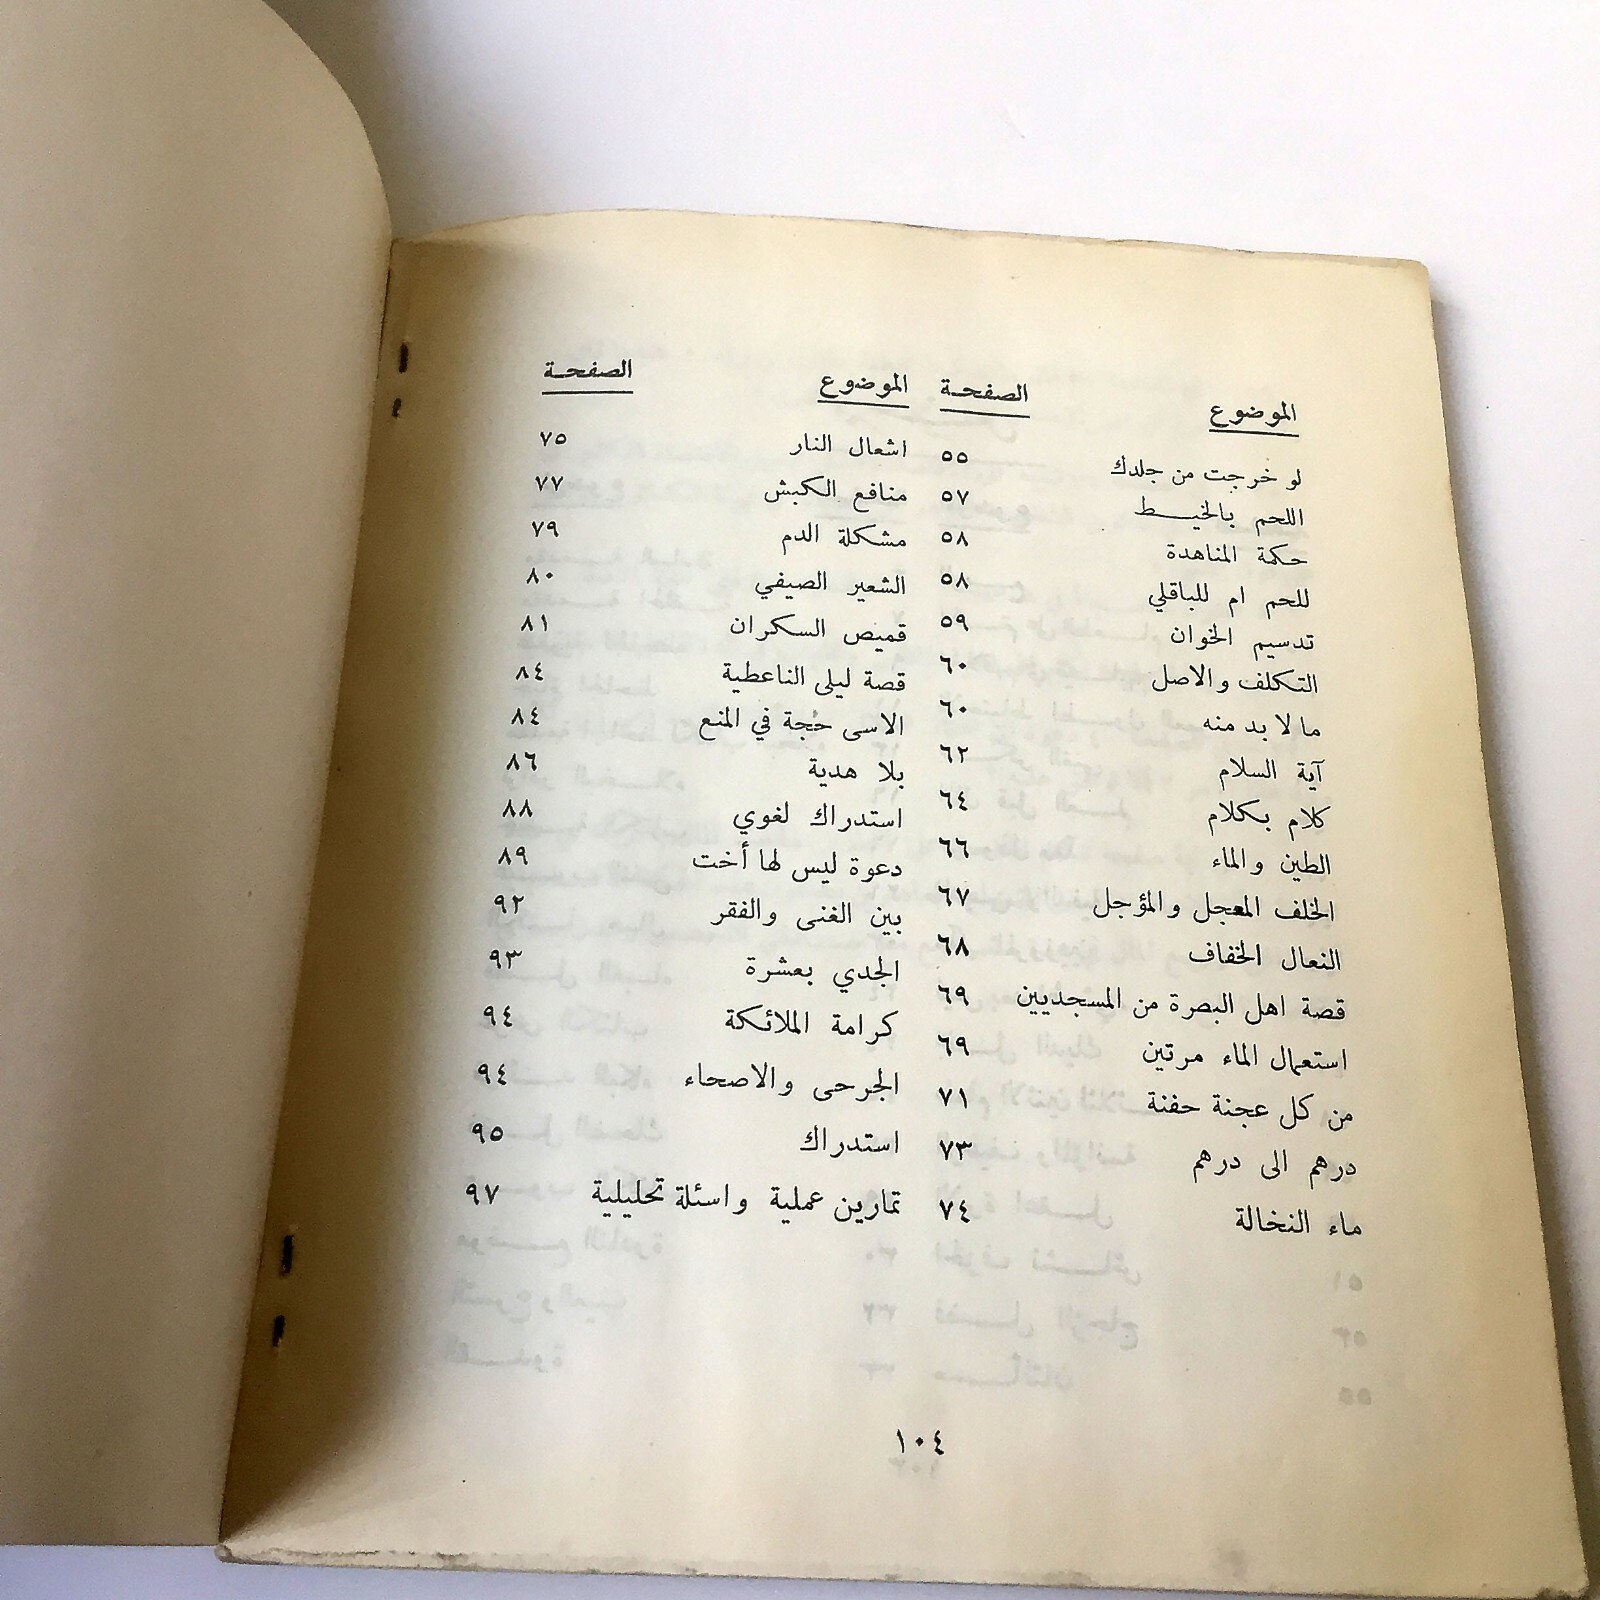 الموضوع الصفحة
لو خرجت من جلدك ٥٥
اللحم بالخيـــط ٥٧
حكمة المناهدة ٥٨
للحم ام للباقلي ٥٨
تدسيم الخوان ٥٩
التكلف والاصل ٦٠
ما لا بد منه ٦٠
آية السلام ٦٢
كلام بكلام ٦٤
الطين والماء ٦٦
الخلف المعجل والمؤجل ٦٧
النعال الخفاف ٦٨
قصة اهل البصرة من المسجديين ٦٩
استعمال الماء مرتين ٦٩
من كل عجنة حفنة ٧١
درهم الى درهم ٧٣
ماء النخالة ٧٤
الموضوع الصفحة
اشعال النار ٧٥
منافع الكبش ٧٧
مشكلة الدم ٧٩
الشعير الصيفي ٨٠
قميص السكران ٨١
قصة ليلى الناعطية ٨٤
الاسى حُجة في المنع ٨٤
بلا هدية ٨٦
استدراك لغوي ٨٨
دعوة ليس لها أخت ٨٩
بين الغنى والفقر ٩٢
الجدي بعشرة ٩٣
كرامة الملائكة ٩٤
الجرحى والاصحاء ٩٤
استدراك ٩٥
تمارين عملية واسئلة تحليلية ٩٧
١٠٤